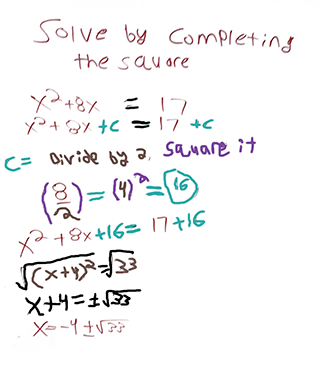 Solve by Completing
the square
x²+8x = 17
x²+8x+c = 17+c
c= Divide by 2, square it
(8/2)=(4)²=16
x²+8x+16= 17+16
√(x+4)²=√33
x+4=±√33
x=-4±√33